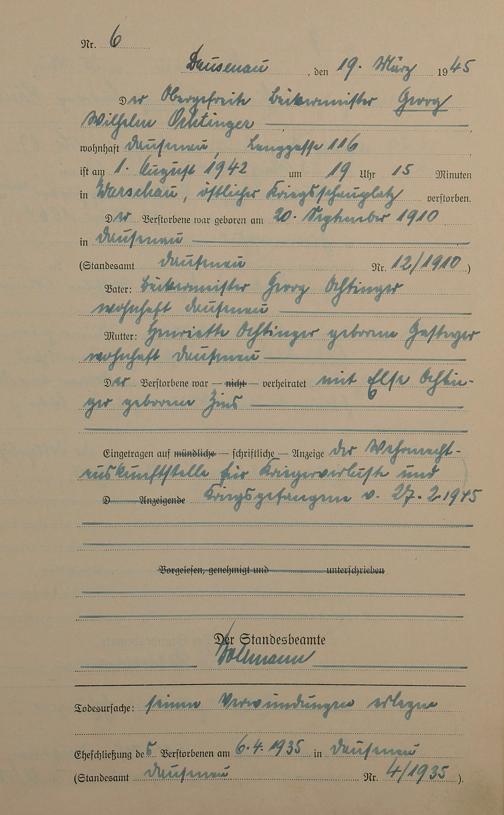 Nr. 6
Dausenau, den 19. März 1945
Der Obergefreite Bäckermeister Georg
Wilhelm Ochtinger
wohnhaft Dausenau, Langgasse 116
ist am 1. August 1942 um 19 Uhr 15 Minuten
in Warschau, östlicher Kriegsschauplatz verstorben.
Der Verstorbene war geboren am 20. September 1910
in Dausenau
(Standesamt Dausenau Nr. 12/1910)
Vater: Bäckermeister Georg Ochtinger
wohnhaft Dausenau
Mutter: Henriette Ochtinger geborene
wohnhaft Dausenau
Der Verstorbene war — nicht — verheiratet mit Else Ochtin-
ger geborene Zins
Eingetragen auf mündliche — schriftliche — Anzeige der Wehrmacht-
auskunftstelle für Kriegerverluste und
D Anzeigende Kriegsgefangene v. 27.2.1945
Vorgelesen, genehmigt und unterschrieben
Der Standesbeamte
Todesursache: seinen Verwundungen erlegen
Eheschließung des Verstorbenen am 6.4.1935 in Dausenau
(Standesamt Dausenau Nr. 4/1935).